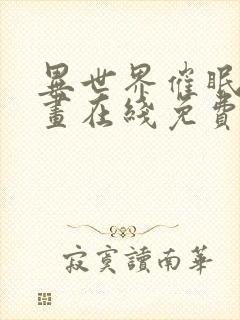 異世界催眠
畫在綫免費
寂寞讀南華